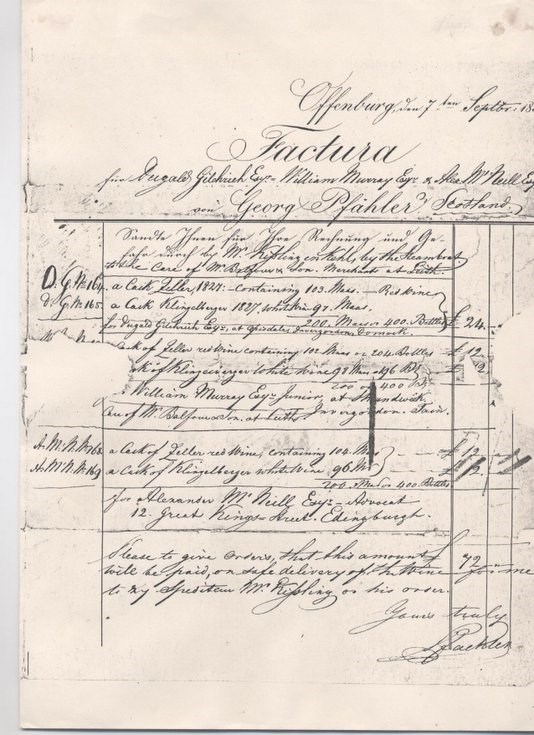 Offenburg, den 7ten Septbr. 18
Factura
für Dugald Gilchrich Esqr. William Murray Esqr. & Alex Mc Neill Esq
von Georg Pfähler Scotland
Sandte Ihnen für Ihre Rechnung und Ge-
fahr durch by Mr. Kipling in Kehl, by the Steamboat
Care of Mr. Balfour & Son. Merchants at Leith
D. G. No. 164. a Cask Zeller, 1827. containing 103. Maas. Red wine
D. G. No. 165. a Cask Klingelberger 1827. White wine 97. Maas.
200. Maas or 400. Bottles £ 24.
for Dugald Gilchrich Esqr. at Dornoch
Cask of Zeller red wine containing 102 Maas or 204. Bottles £ 12
k of Klingelberger White Wine 98 Maas or 196 £
200 or 400 B
William Murray Esqr. Junior, at
Care of Mr. Balfour & Son. at Leith. Invergordon. Tain.
A. M. N. No. 168. a Cask of Zeller red wine, containing 104. Maas £ 12
A. M. N. No. 169 a Cask of Klingelberger white wine, 96. Maas £ 12
200. Maas or 400. Bottles
for Alexander Mc Neill Esqr. Advocat
12. Great Kings Street. Edingburgh.
Please to give orders, that this amount £ 72
will be paid, on safe delivery of the Wine for me
to my Spediteur Mr. Kipling or his order.
Yours truly
Pfaehler